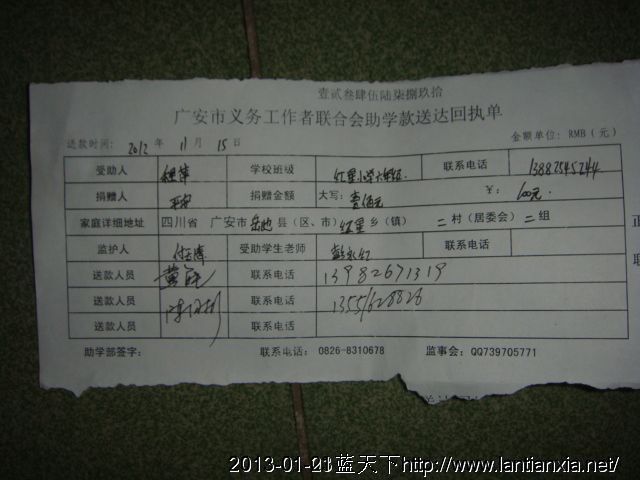 壹贰叁肆伍陆柒捌玖拾
广安市义务工作者联合会助学款送达回执单
送款时间: 2012 年 11 月 15 日 金额单位: RMB（元）
受助人 学校班级 红星小学六年级 联系电话
捐赠人 捐赠金额 大写: 壹佰元 ¥: 100元
家庭详细地址 四川省 广安市 岳池 县（区、市） 红星 乡（镇） 二 村（居委会） 二 组
监护人 受助学生老师 联系电话
送款人员 联系电话 13982671319
送款人员 联系电话 13551628826
送款人员 联系电话
助学部签字: 联系电话: 0826-8310678 监事会: QQ739705771
蓝天下http://www.lantianxia.net/